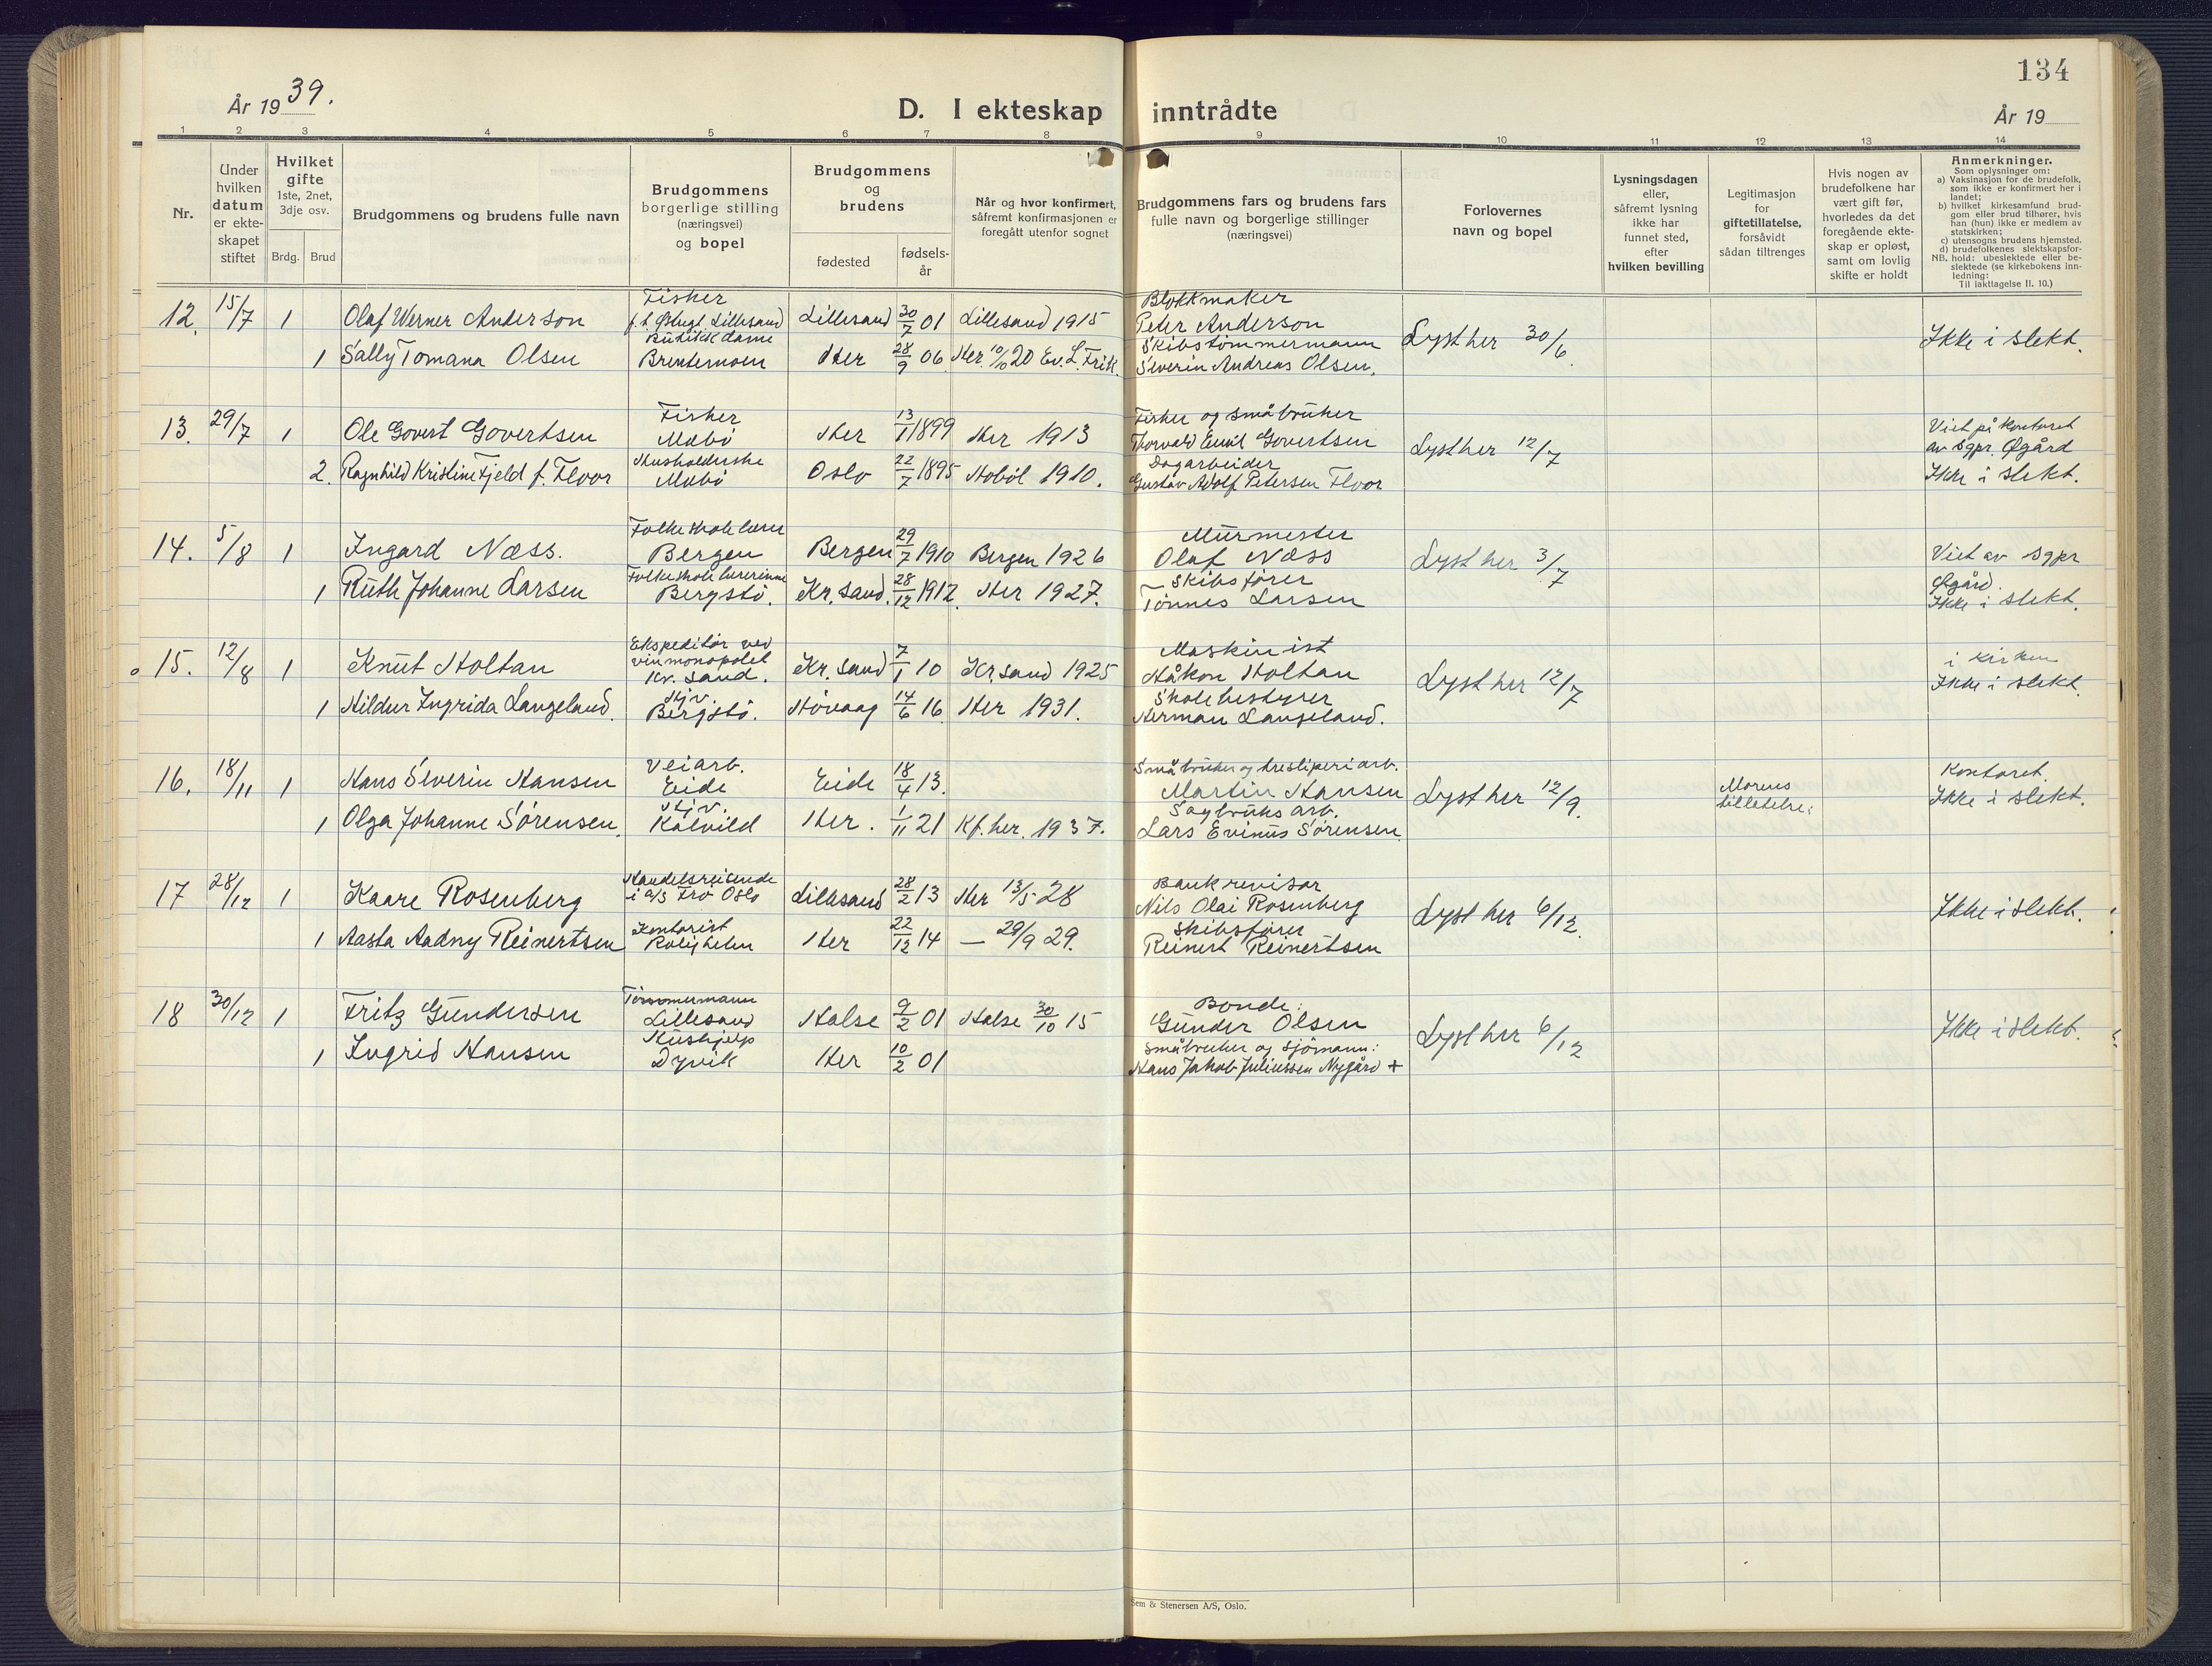 134
År 1939.
D. I ekteskap inntrådte
År 19
1 2 3 4 5 6 7 8 9 10 11 12 13 14
Nr.
Under
hvilken
datum
er ekte-
skapet
stiftet
Hvilket
gifte
1ste, 2net,
3dje osv.
Brdg. Brud
Brudgommens og brudens fulle navn
Brudgommens
borgerlige stilling
(næringsvei)
og bopel
Brudgommens
og
brudens
fødested
fødsels-
år
Når og hvor konfirmert,
såfremt konfirmasjonen er
foregått utenfor sognet
Brudgommens fars og brudens fars
fulle navn og borgerlige stillinger
(næringsvei)
Forlovernes
navn og bopel
Lysningsdagen
eller,
såfremt lysning
ikke har
funnet sted,
efter
hvilken bevilling
Legitimasjon
for
giftetillatelse,
forsåvidt
sådan tiltrenges
Hvis nogen av
brudefolkene har
vært gift før,
hvorledes da det
foregående ekte-
skap er opløst,
samt om lovlig
skifte er holdt
Anmerkninger.
Som oplysninger om:
a) Vaksinasjon for de brudefolk,
som ikke er konfirmert her i
landet;
b) hvilket kirkesamfund brud-
gom eller brud tilhører, hvis
han (hun) ikke er medlem av
statskirken;
c) utensogns brudens hjemsted.
d) brudefolkenes slektskapsfor-
NB. hold: ubeslektede eller be-
slektede (se kirkebokens inn-
ledning:
Til iakttagelse II. 10.)
Fisker Blokkmaker
12. 15/7 1 Olaf Werner Anderson Lillesand Lillesand 30/7 01 Lillesand 1915 Peter Anderson Lyst her 30/6 Ikke i slekt.
Butikkdame Skibstømmermann
1 Sally Tomana Olsen Brentemoen Her 28/9 06 Her 20 Ev. L. Frik. Severin Andreas Olsen.
Fisker Fisker og småbruker Viet på kontoret
13. 29/7 1 Ole Govert Govertsen Mæbø Her 13/11 1899 Her 1913 Thorvald Emil Govertsen Lyst her 12/7 av sgpr. Øgård
Husholderske Dagarbeider
2. Ragnhild Kristine Fjeld f. Floor Mæbø Oslo 22/7 1895 Hobøl 1910. Gustav Adolf Petersen Floor Ikke i slekt.
Folkeskolelærer Murmester
14. 5/8 1 Ingard Næss. Bergen Bergen 29/7 1910 Bergen 1926 Olaf Næss Lyst her 3/7 Viet av sgpr
Folkeskolelærerinne Skibsfører Øgård.
1 Ruth Johanne Larsen Bergstø. Kr.sand. 28/12 1912. Her 1927. Tønnes Larsen Ikke i slekt.
Ekspeditør ved Maskinist
vinmonopolet i kirken
15. 12/8 1 Knut Holtan Kr. sand. Kr.sand 7/1 10 Kr.sand 1925 Håkon Holtan Lyst her 12/7 Ikke i slekt.
Hjv. Skolebestyrer
1 Hildur Ingrida Langeland. Bergstø. Høvaag 14/6 16 Her 1931. Herman Langeland.
Veiarb. Småbruker og tresliperiarb. Kontoret.
16. 18/11 1 Hans Severin Hansen Eide Eide 18/4 13. Martin Hansen Lyst her 12/9. Morens tillatelse: Ikke i slekt.
Hjv. Sagbruks arb.
1 Olga Johanne Sørensen. Kalvild Her. 1/11 21 Kf. her. 1937. Lars Evinus Sørensen
Handelsreisende Bankrevisor
17 28/12 1 Kaare Rosenberg i a/s Frø Oslo Lillesand 28/2 13 Her 13/5 28 Nils Olai Rosenberg Lyst her 6/12. Ikke i slekt.
Kontorist Skibsfører
1 Aasta Aadny Reinertsen Roligheten Her 22/12 14 — 29/9 29. Reinert Reinertsen
Tømmermann Bonde:
18 30/12 1 Fritz Gundersen Lillesand Halse 9/2 01 Halse 30/10 15 Gunder Olsen Lyst her 6/12 Ikke i slekt.
Hushjelp Småbruker og sjømann:
1 Ingrid Hansen Dyvik Her 10/2 01 Hans Jakob Juliussen Nygård +
Sem & Stenersen A/S, Oslo.